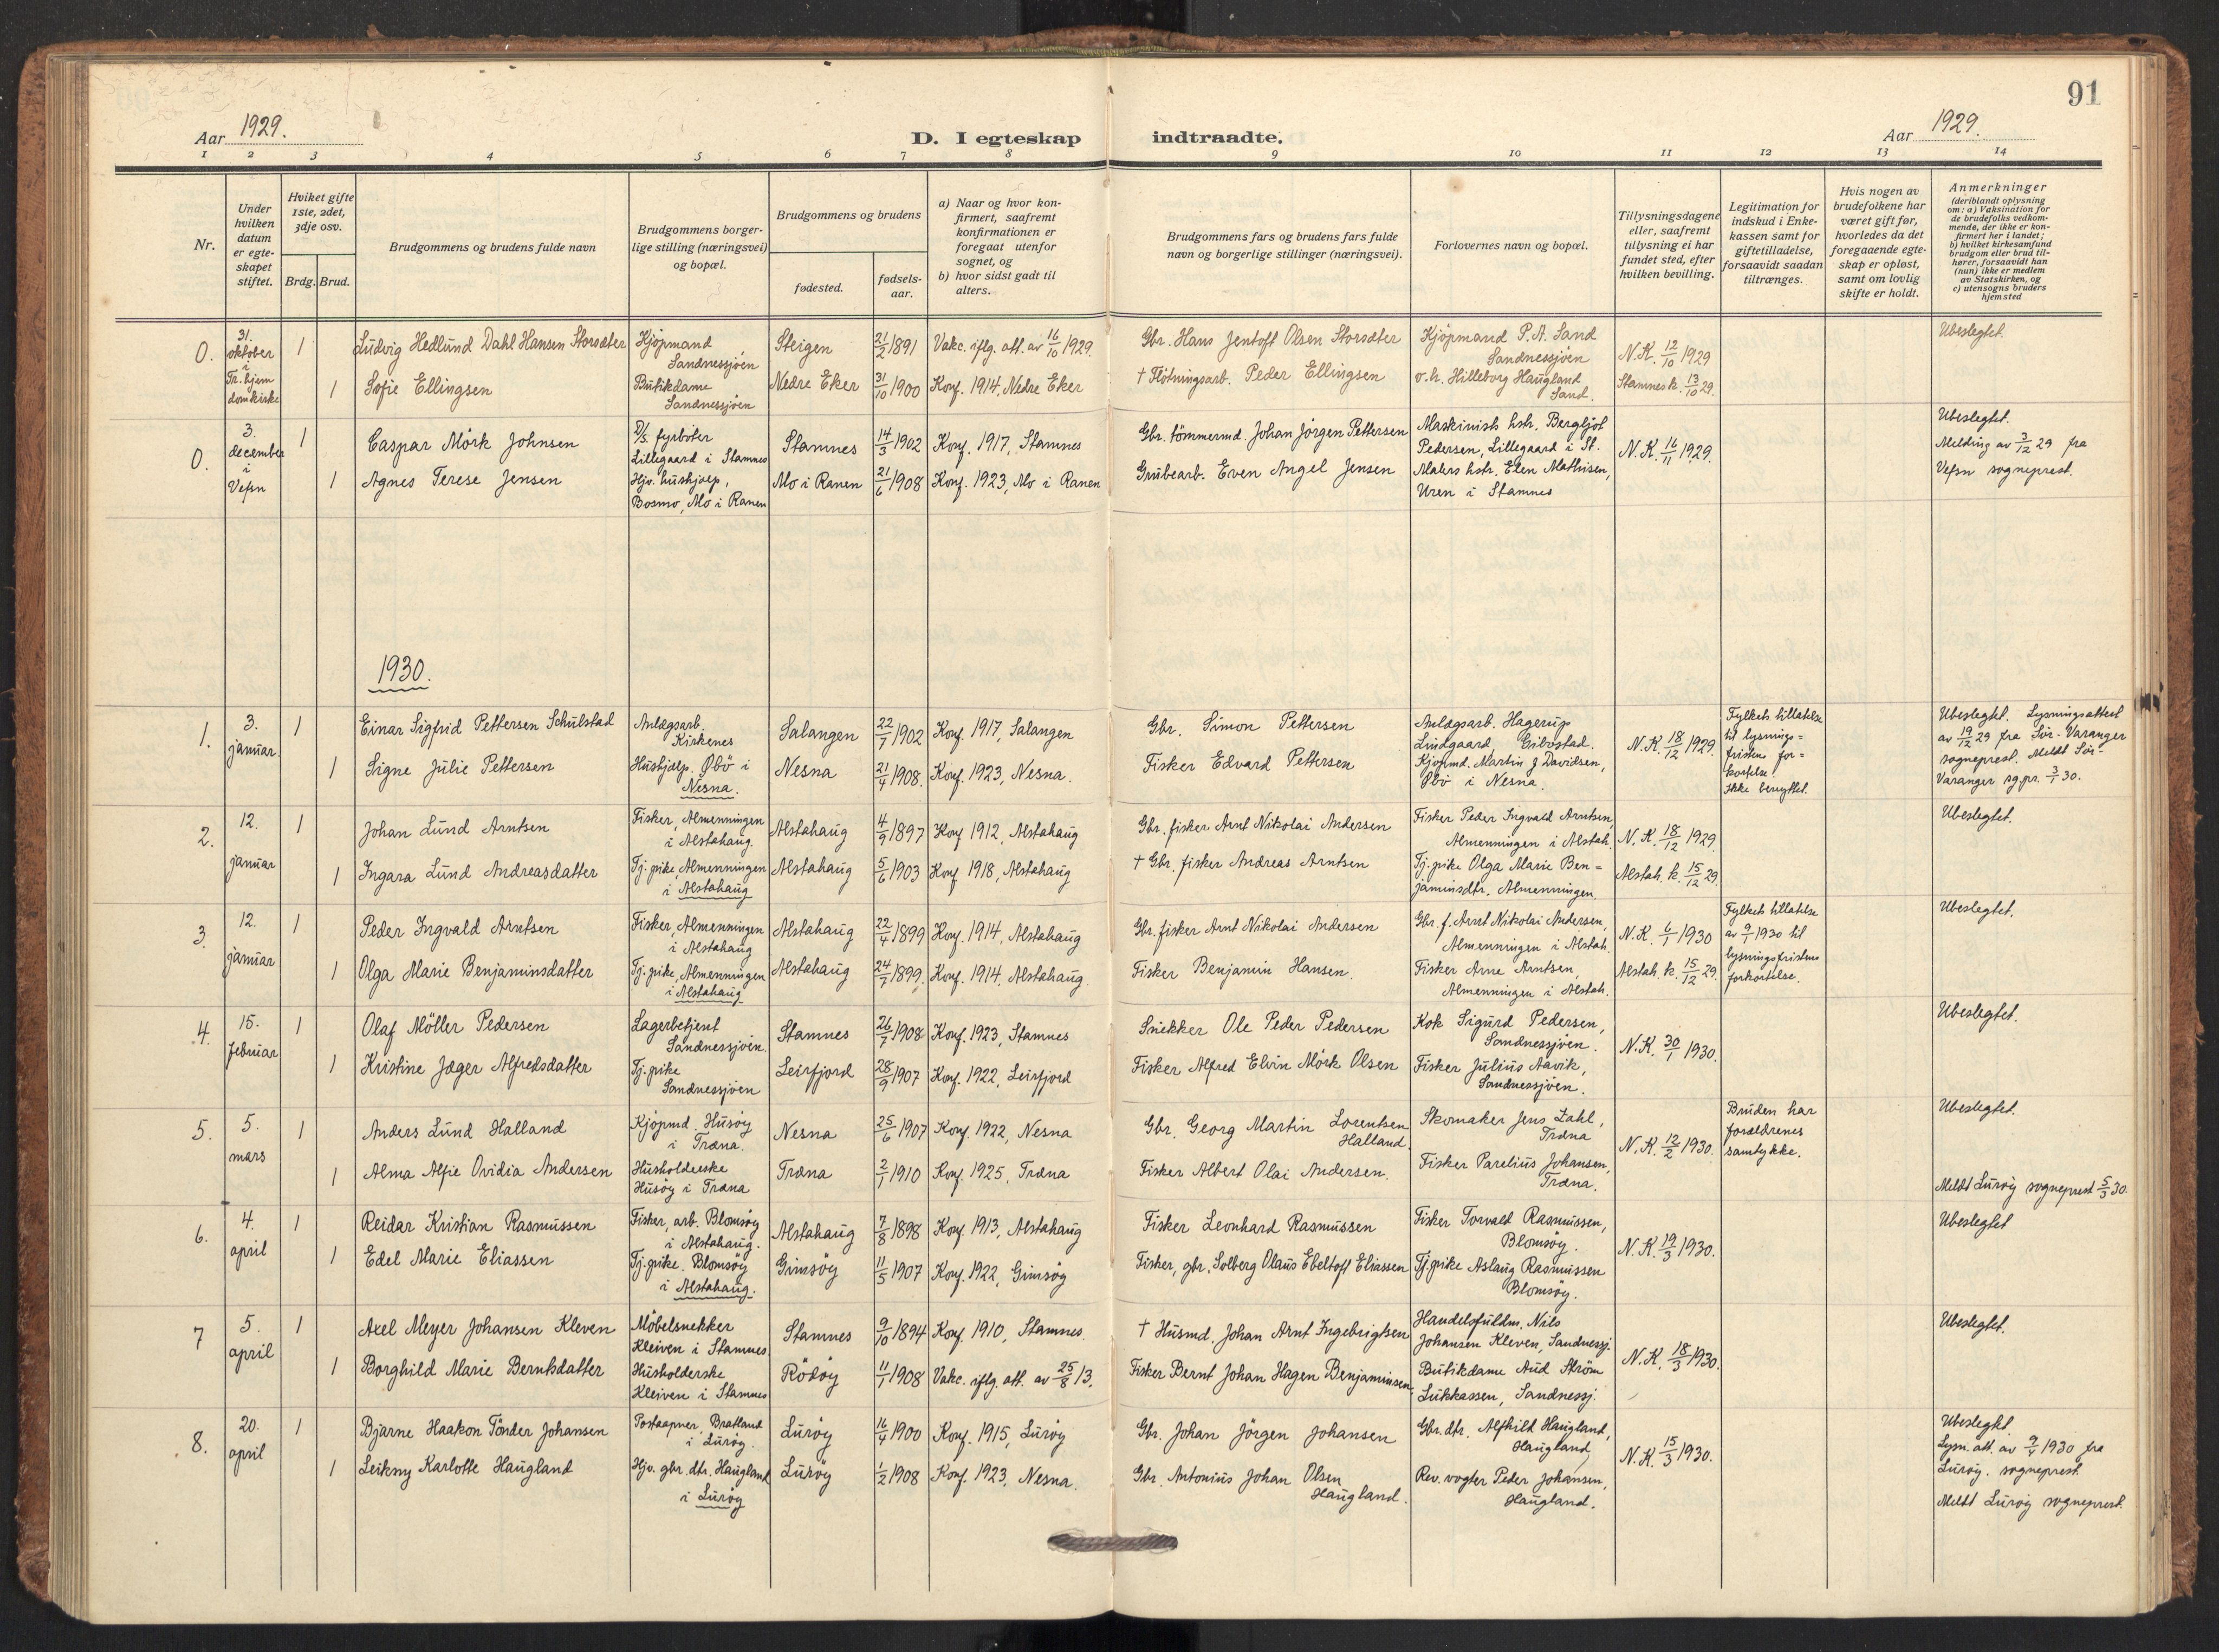 91
Aar 1929.
D. I egteskap indtraadte.
Aar 1929.
1 2 3 4 5 6 7 8 9 10 11 12 13 14
Nr.
Under hvilken datum er egteskapet stiftet.
Hviket gifte 1ste, 2det, 3dje osv.
Brdg. Brud.
Brudgommens og brudens fulde navn
Brudgommens borgerlige stilling (næringsvei) og bopæl.
Brudgommens og brudens
fødested.
fødselsaar.
a) Naar og hvor konfirmert, saafremt konfirmationen er foregaat utenfor sognet, og
b) hvor sidst gaat til alters.
Brudgommens fars og brudens fars fulde navn og borgerlige stillinger (næringsvei).
Forlovernes navn og bopæl.
Tillysningsdagene eller, saafremt tillysning ei har fundet sted, efter hvilken bevilling.
Legitimation for indskud i Enkekassen samt for giftetilladelse, forsaavidt saadan tiltrænges.
Hvis nogen av brudefolkene har været gift før, hvorledes da det foregaaende egteskap er opløst, samt om lovlig skifte er holdt.
Anmerkninger
(deriblandt oplysning om: a) Vaksination for de brudefolks vedkommende, der ikke er konfirmert her i landet; b) hvilket kirkesamfund brudgom eller brud tilhører, forsaavidt han (hun) ikke er medlem av Statskirken, og c) utensogns bruders hjemsted
0. 31. oktober i Tr.hjem domkirke
1 Ludvig Hedlund Dahl Hansen Storsæter Kjöpmand Sandnessjöen Steigen 21/2 1891 Vakc. iflg. att. av 16/10 1929. Gbr. Hans Jentoft Olsen Storsæter Kjöpmand P. A. Sand Sandnessjöen N.K. 12/10 1929 Ubeslegtet.
1 Sofie Ellingsen Butikdame Sandnessjöen Nedre Eker 31/10 1900 Konf. 1914, Nedre Eker † Flötningsarb. Peder Ellingsen o.h. Hilleborg Haugland Sand. Stamnes k. 13/10 29.
0. 3. december i Vefsn
1 Caspar Mörk Johnsen D/S. fyrböter Lillegaard i Stamnes Stamnes 14/3 1902 Konf. 1917, Stamnes Gbr. tömmermd. Johan Jörgen Pettersen Maskinists hstr. Bergljot Pedersen, Lillegaard i St. N.K. 16/11 1929. Ubeslegtet. Melding av 3/12 29 fra Vefsn sogneprest.
1 Agnes Terese Jensen Hjv. hushjælp, Bosmo, Mo i Ranen Mo i Ranen 21/6 1908 Konf. 1923, Mo i Ranen Grubearb. Even Angel Jensen Malers hstr. Elen Mathisen, Uren i Stamnes
1930.
1. 3. januar
1 Einar Sigfrid Pettersen Schulstad Anlægsarb. Kirkenes Salangen 22/7 1902 Konf. 1917, Salangen Gbr. Simon Pettersen Anlægsarb. Hagerup Lindgaard, Gibostad. N.K. 18/12 1929. Fylkets tillatelse til lysnings=fristens for=kortelse. Ikke benyttet. Ubeslegtet. Lysningsattest av 19/12 29 fra Sör-Varanger sogneprest. Meldt Sör-Varanger sg.pr. 3/1 30.
1 Signe Julie Pettersen Hushjælp. Øbö i Nesna. Nesna 21/4 1908. Konf. 1923, Nesna. Fisker Edvard Pettersen Kjöpmd. Martin J Davidsen, Öbö i Nesna.
2. 12. januar
1 Johan Lund Arntsen Fisker, Almenningen i Alstahaug. Alstahaug 4/9 1897 Konf 1912, Alstahaug Gbr. fisker Arnt Nikolai Andersen Fisker Peder Ingvald Arntsen, Almenningen i Alstah. N.K. 18/12 1929. Ubeslegtet.
1 Ingara Lund Andreasdatter Tj. pike, Almenningen i Alstahaug Alstahaug 5/6 1903 Konf 1918, Alstahaug † Gbr. fisker Andreas Arntsen Tj. pike Olga Marie Ben=jaminsdtr. Almenningen. Alstah. k. 15/12 29.
3. 12. januar
1 Peder Ingvald Arntsen Fisker, Almenningen i Alstahaug Alstahaug 22/4 1899 Konf. 1914, Alstahaug Gbr. fisker Arnt Nikolai Andersen Gbr. f. Arnt Nikolai Andersen, Almenningen i Alstah. N.K. 6/1 1930 Fylkets tillatelse av 9/1 1930 til lysningsfristens forkortelse. Ubeslegtet.
1 Olga Marie Benjaminsdatter Tj. pike, Almenningen i Alstahaug Alstahaug 24/7 1899. Konf. 1914, Alstahaug. Fisker Benjamin Hansen. Fisker Arne Arntsen, Almenningen i Alstah. Alstah. k. 15/12 29.
4. 15. februar
1 Olaf Möller Pedersen Lagerbetjent Sandnessjöen. Stamnes 26/7 1908 Konf. 1923, Stamnes Snekker Ole Peder Pedersen Kok Sigurd Pedersen, Sandnessjöen. N.K. 30/1 1930. Ubeslegtet.
1 Kristine Jæger Alfredsdatter Tj. pike Sandnessjöen Leirfjord 28/9 1907 Konf. 1922, Leirfjord Fisker Alfred Elvin Mörk Olsen Fisker Julius Aavik, Sandnessjöen.
5. 5. mars
1 Anders Lund Halland Kjöpmd. Husöy i Træna. Nesna 25/6 1907 Konf. 1922, Nesna Gbr. Georg Martin Lorentsen Halland Skomaker Jens Zahl, Træna N.K. 12/2 1930. Bruden har forældrenes samtykke. Ubeslegtet.
1 Alma Alfie Ovidia Andersen Husholderske Husöy i Træna Træna 2/1 1910 Konf. 1925, Træna Fisker Albert Olai Andersen. Fisker Parelius Johansen, Træna. Meldt Luröy sogneprest 5/3 30.
6. 4. april
1 Reidar Kristian Rasmussen Fisker, arb. Blomsöy i Alstahaug. Alstahaug 7/8 1898 Konf. 1913, Alstahaug Fisker Leonhard Rasmussen Fisker Torvald Rasmussen, Blomsöy. N.K. 19/3 1930. Ubeslegtet
1 Edel Marie Eliassen Tj. pike. Blomsöy i Alstahaug. Gimsöy 11/5 1907 Konf. 1922, Gimsöy Fisker, gbr. Solberg Olaus Ebeltoft Eliassen Tj. pike Aslaug Rasmussen Blomsöy.
7 5. april
1 Axel Meyer Johansen Kleven Möbelsnekker Kleiven i Stamnes Stamnes 9/10 1894 Konf. 1910, Stamnes. † Husmd. Johan Arnt Ingebrigtsen Handelsfuldm. Nils Johansen Kleven, Sandnessj. N.K. 18/3 1930. Ubeslegtet.
1 Borghild Marie Berntsdatter Husholderske Kleiven i Stamnes Rödöy 11/1 1908 Vakc. iflg. att. av 25/8 13. Fisker Bernt Johan Hagen Benjaminsen, Butikdame Aud Ström Lukkassen, Sandnessj.
8. 20. april
1 Bjarne Haakon Tönder Johansen Postaapner, Bratland i Luröy. Luröy 16/4 1900 Konf. 1915, Luröy Gbr. Johan Jörgen Johansen Gbr.dtr. Alfhild Haugland, Haugland N.K. 15/3 1930. Ubeslegtet. Lysn. att. av 9/4 1930 fra Luröy. sogneprest.
1 Leikny Karlotte Haugland Hjv. gbr. dtr. Haugland i Luröy Luröy 1/2 1908 Konf. 1923, Nesna. Gbr. Antonius Johan Olsen Haugland. Rev. vogter Peder Johansen, Haugland. Meldt Luröy sogneprest.